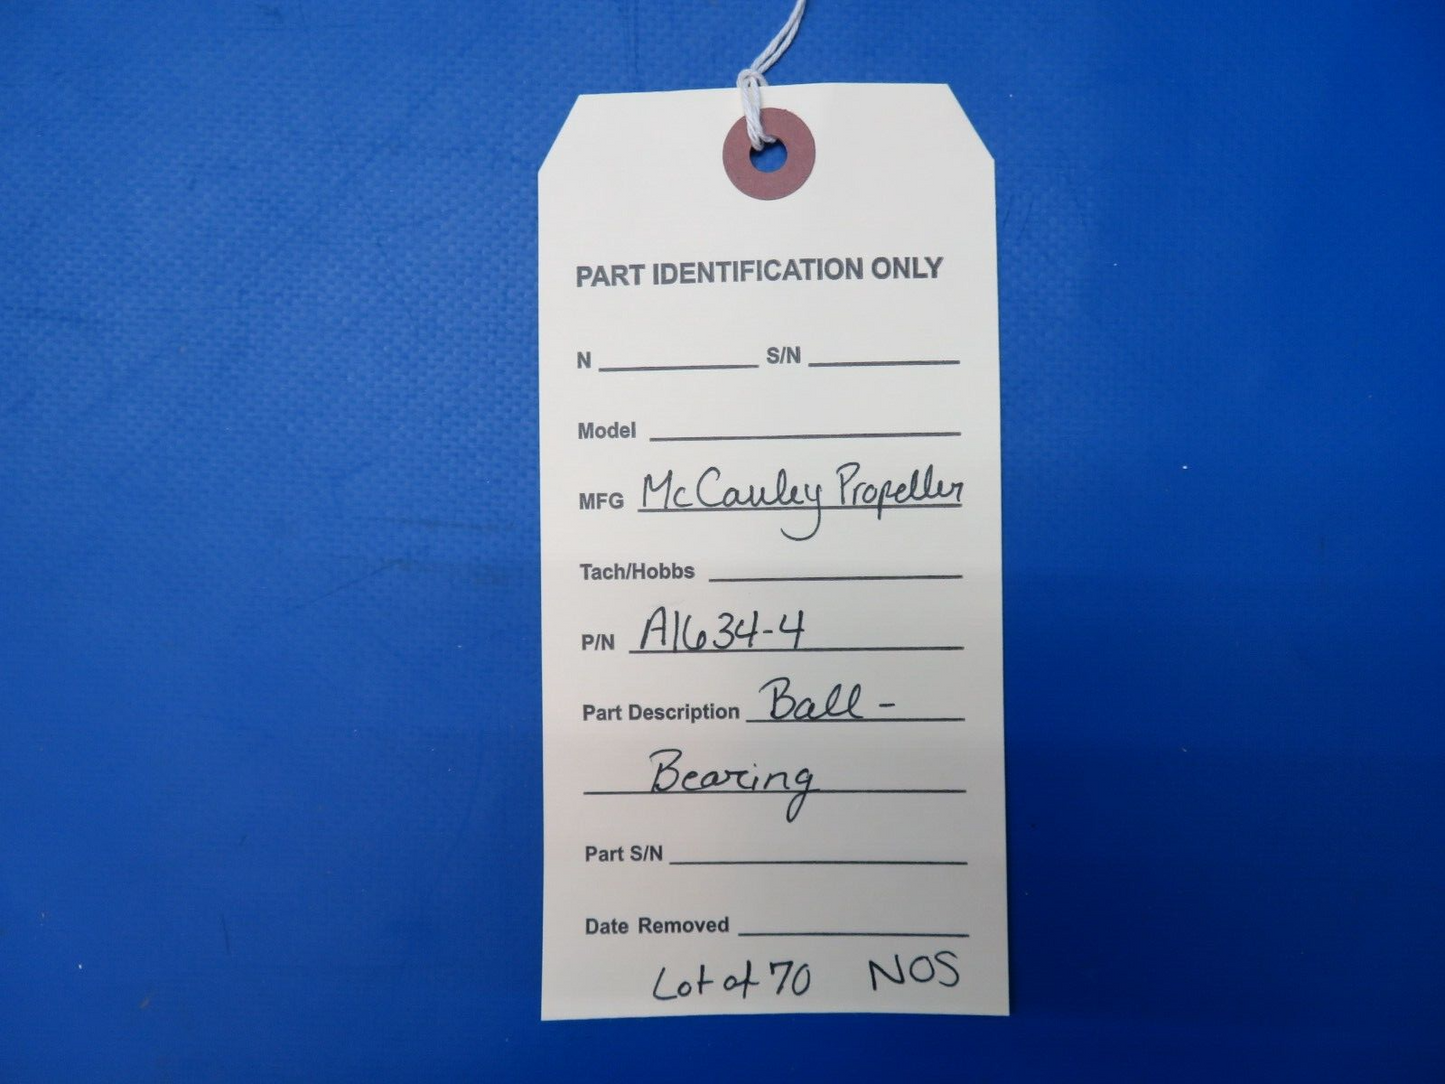 PART IDENTIFICATION ONLY
N S/N
Model
MFG McCauley Propeller
Tach/Hobbs
P/N A1634-4
Part Description Ball -
Bearing
Part S/N
Date Removed
Lot of 70 NOS